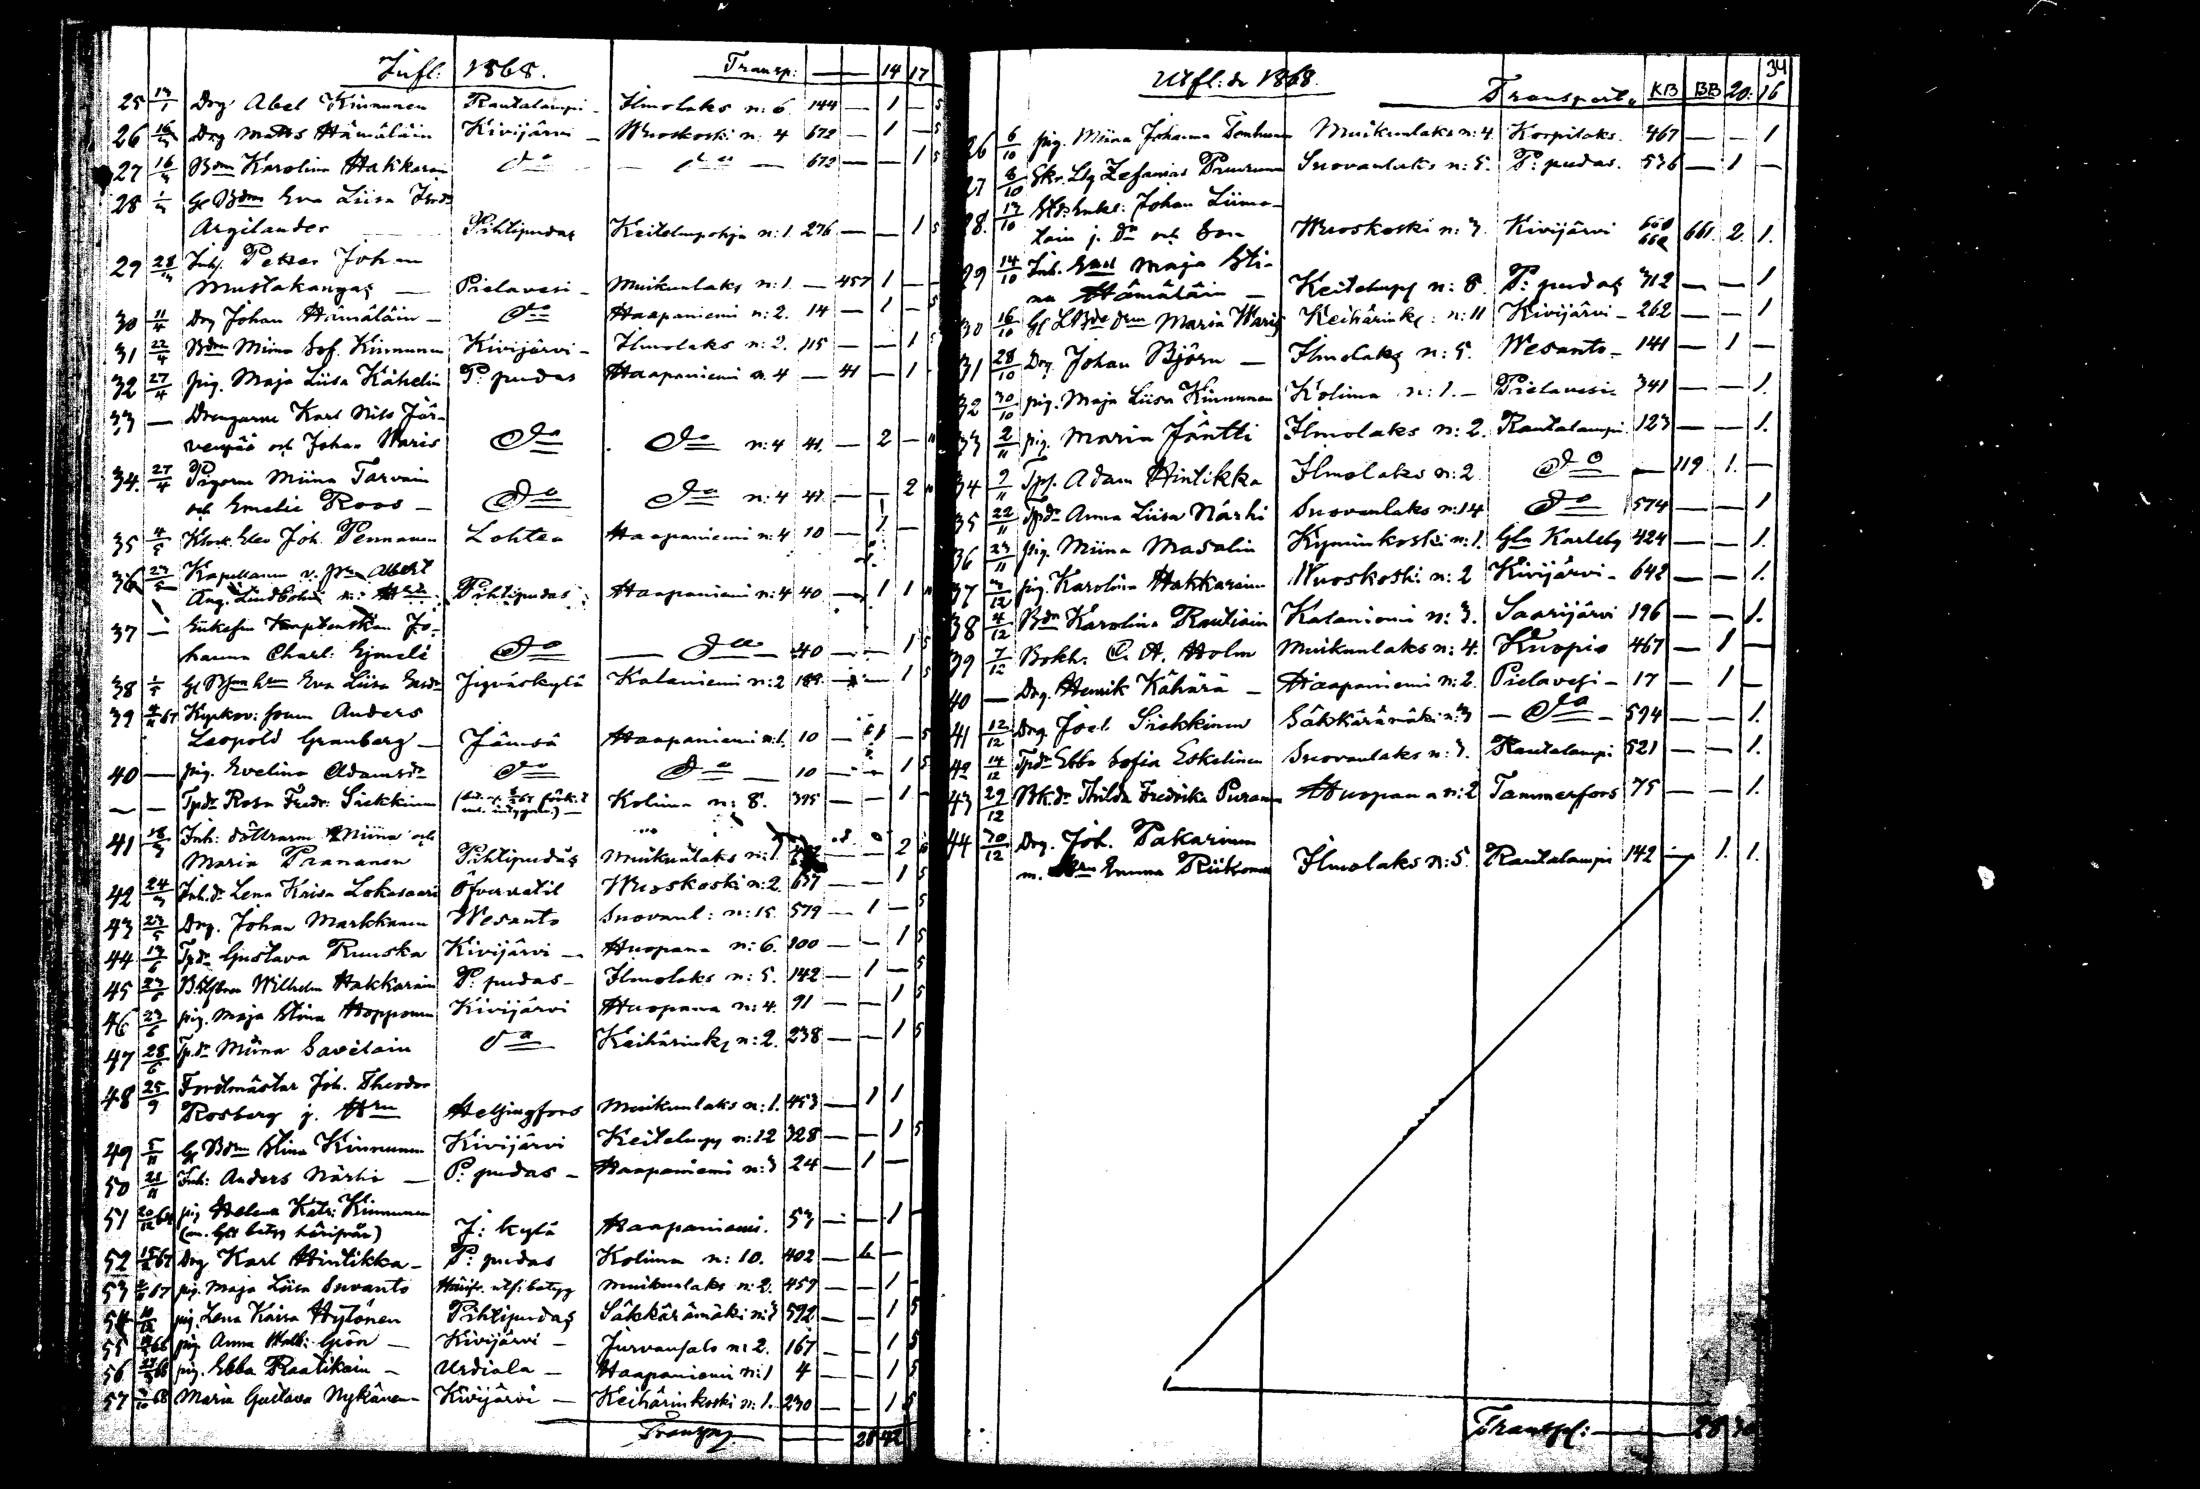 Infl: 1868. Transp: — — 14 17
25 13/1 Drg Abel Kinnunen Rautalampi - Ilmolaks n: 6 144 — 1 — 5
26 Drg Matts Hämäläin Kivijärvi - Wuoskoski n: 4 672 — 1 — 5
27 Bdn Karolina Hakkarain do — do — 672 — — 1 5
28 Gl Bdn Eva Liisa
Argilander Pihtipudas Keitelepohja n: 1. 276 — — 1 5
29 Inh. Petter Johan
Mustakangas — Pielavesi - Muikunlaks n: 1. — 457 1 —
30 11/4 Drg Johan Hämäläin — do Haapaniemi n: 2. 14 — 1 — 5
31 22/4 Bdn Miina Sof. Kinnunen Kivijärvi - Ilmolaks n: 2. 115 — — 1
32 27/4 pig. Maja Liisa Kähelin P: pudas Haapaniemi n. 4 — 41 — 1
33 — Drengarne Karl Nils Jär-
venpää och Johan Waris do do n: 4 41. — 2 —
34. 27/4 Pigorna Miina Tarvain
och Emelie Roos — do do n: 4 41 — — 2
35 4/5 Klock. Elev Joh. Pennanen Lohtea Haapaniemi n: 4 10 — 1 —
36 Kapellanen v. Albert
Aug. Lindholm Pihtipudas Haapaniemi n: 4 40 — 1 1
37 — Enkefru Kaptenskan Jo-
hanna Charl: do — do — 40 — — 1 5
38 Eva Liisa Jyväskylä Kalaniemi n: 2 189 — — 1 5
39 67 Anders
Leopold Granberg — Jämsä Haapaniemi n: 1. 10 — 1 — 5
40 — pig. Evelina Adamsdr do do — 10 — — 1 5
— — Tpdr Rosa Fredr: Siekkinen Kolima n: 8. 395 — — 1
41 Inh: döttrarne Miina och
Maria Prananen Pihtipudas Muikunlaks n: 1. — — 2
42 Inh. dr Lena Kaisa Lokasaari Öfvervetil Wuoskoski n: 2. 637 — — 1 5
43 23/5 Drg. Johan Markkanen Wesanto Suovanl: n: 15. 579 — 1 — 5
44 13/6 Tpdr Gustava Ruuska Kivijärvi — Huopana n: 6. 100 — — 1 5
45 23/6 Wilhelm Hakkarain P: pudas - Ilmolaks n: 5. 142 — 1 — 5
46 23/6 pig. Maja Stina Hopponen Kivijärvi Huopana n: 4. 91 — — 1 5
47 28/6 Tpdr Miina Savelain do Keihärinkg n: 2. 238 — — 1 5
48 25/9 Forstmästar Joh. Theodor
Rosberg j. Hru Helsingfors Muikunlaks n: 1. 453 — 1 1
49 5/11 Gl Bdn Stina Kinnunen Kivijärvi Keitelepg n: 12 328 — — 1 5
50 21/11 Inh: Anders Närhi — P: pudas - Haapaniemi n: 3 24 — 1 —
51 20/12 pig Helena Katr: Kinnunen
(m. betyg härifrån) J: kylä Haapaniemi. 53 — — 1
52 67 Drg Karl Hintikka — P: pudas Kolima n: 10. 402 — 1 —
53 67 pig. Maja Liisa Suvanto Härifr. utfl: betyg Muikunlaks n: 2. 459 — — 1
54 10/12 pig. Lena Kaisa Hytönen Pihtipudas Säkkärämäki n: 3 592 — — 1 5
55 66 pig Anna Grön — Kivijärvi — Jurvansalo n: 2. 167 — — 1 5
56 66 pig. Ebba Raatikain — Urdiala — Haapaniemi n: 1 4 — — 1 5
57 68 Maria Gustava Nykänen Kivijärvi — Keihärinkoski n: 1. 230 — — 1 5
Transp. — 28 42
34
Utfl: de 1868. Transport. KB BB 20: 16
26 6/10 pig. Miina Johanna Tenhunen Muikunlaks n: 4. Korpilaks. 467 — — 1
27 8/10 Skr. Llg Zefanias Puuranen Suovanlaks n: 5. P: pudas. 536 — 1 —
28. 13/10 Johan Liima-
tain j. dr och Son Wuoskoski n: 3. Kivijärvi 661. 2. 1.
29 14/10 Inh. Maja Sti-
na Hämäläin — Keitelepg n: 8. P: pudas 312 — — 1
30 16/10 Maria Waris Keihärinkg: n: 11 Kivijärvi - 262 — — 1
31 28/10 Drg. Johan Björn — Ilmolaks n: 5. Wesanto - 141 — 1 —
32 30/10 pig. Maja Liisa Kinnunen Kolima n: 1. - Pielavesi - 341 — — 1.
33 2/11 pig. Maria Jäntti Ilmolaks n: 2. Rautalampi. 123 — — 1.
34 9/11 Tpf. Adam Hintikka Ilmolaks n: 2 do — 119. 1. —
35 22/11 Tpdr Anna Liisa Närhi Suovanlaks n: 14 do 574 — — 1
36 23/11 pig. Miina Masalin Kyminkoski n: 1. Gla Karleby 424 — — 1.
37 3/12 pig. Karolina Hakkarain Wuoskoski n: 2 Kivijärvi - 642 — — 1.
38 4/12 Bdn Karolina Rautiain Kalaniemi n: 3. Saarijärvi 196 — — 1.
39 7/12 Bokh. C. A. Holm Muikunlaks n: 4. Kuopio 467 — 1 —
40 — Drg. Henrik Kähärä — Haapaniemi n: 2. Pielavesi - 17 — 1 —
41 12/12 Drg. Joel Siekkinen Säkkärämäki n: 3 — do — 594 — — 1.
42 14/12 Tpdr Ebba Sofia Eskelinen Suovanlaks n: 3. Rautalampi 521 — — 1.
43 29/12 Bk. dr Hilda Fredrika Puranen Huopana n: 2 Tammerfors 75 — — 1.
44 30/12 Drg. Joh. Pakarinen
m. Hru Emma Riikonen Ilmolaks n: 5. Rautalampi 142 — 1. 1.
Transp: — 28 30